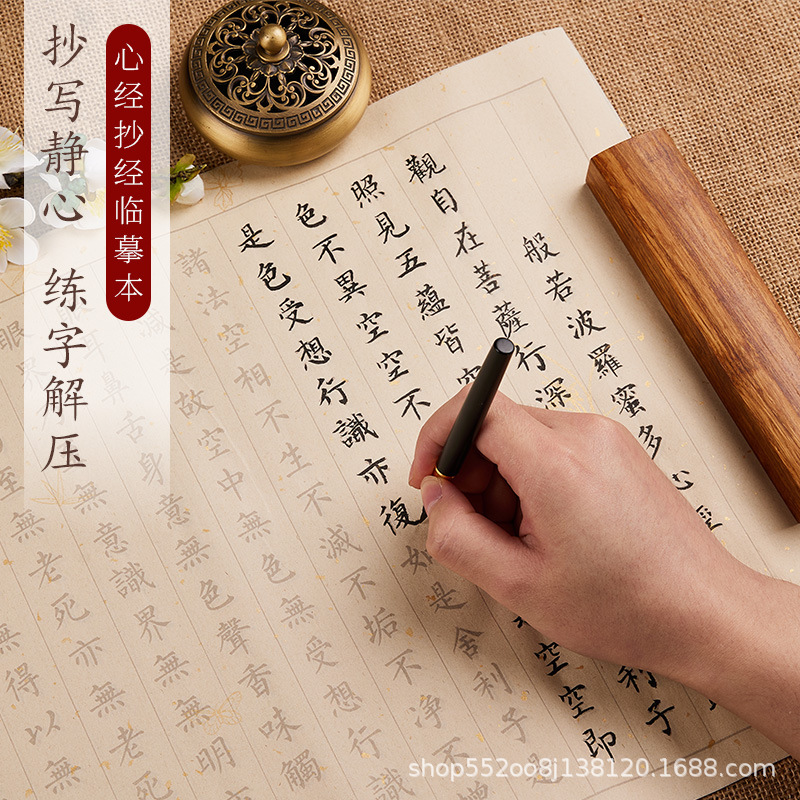 抄写静心 练字解压
心经抄经临摹本
般若波羅蜜多心經
觀自在菩薩行深
照見五蘊皆空
利子
色不異空空不
空空即
是色受想行識亦復如是舍利子是
諸法空相不生不滅不垢不淨不
減是故空中無色無受想行識
耳鼻舌身意無色聲香味觸
眼界
無意識界無無明
至無老死亦無老死
無得以無
shop552oo8j138120.1688.com